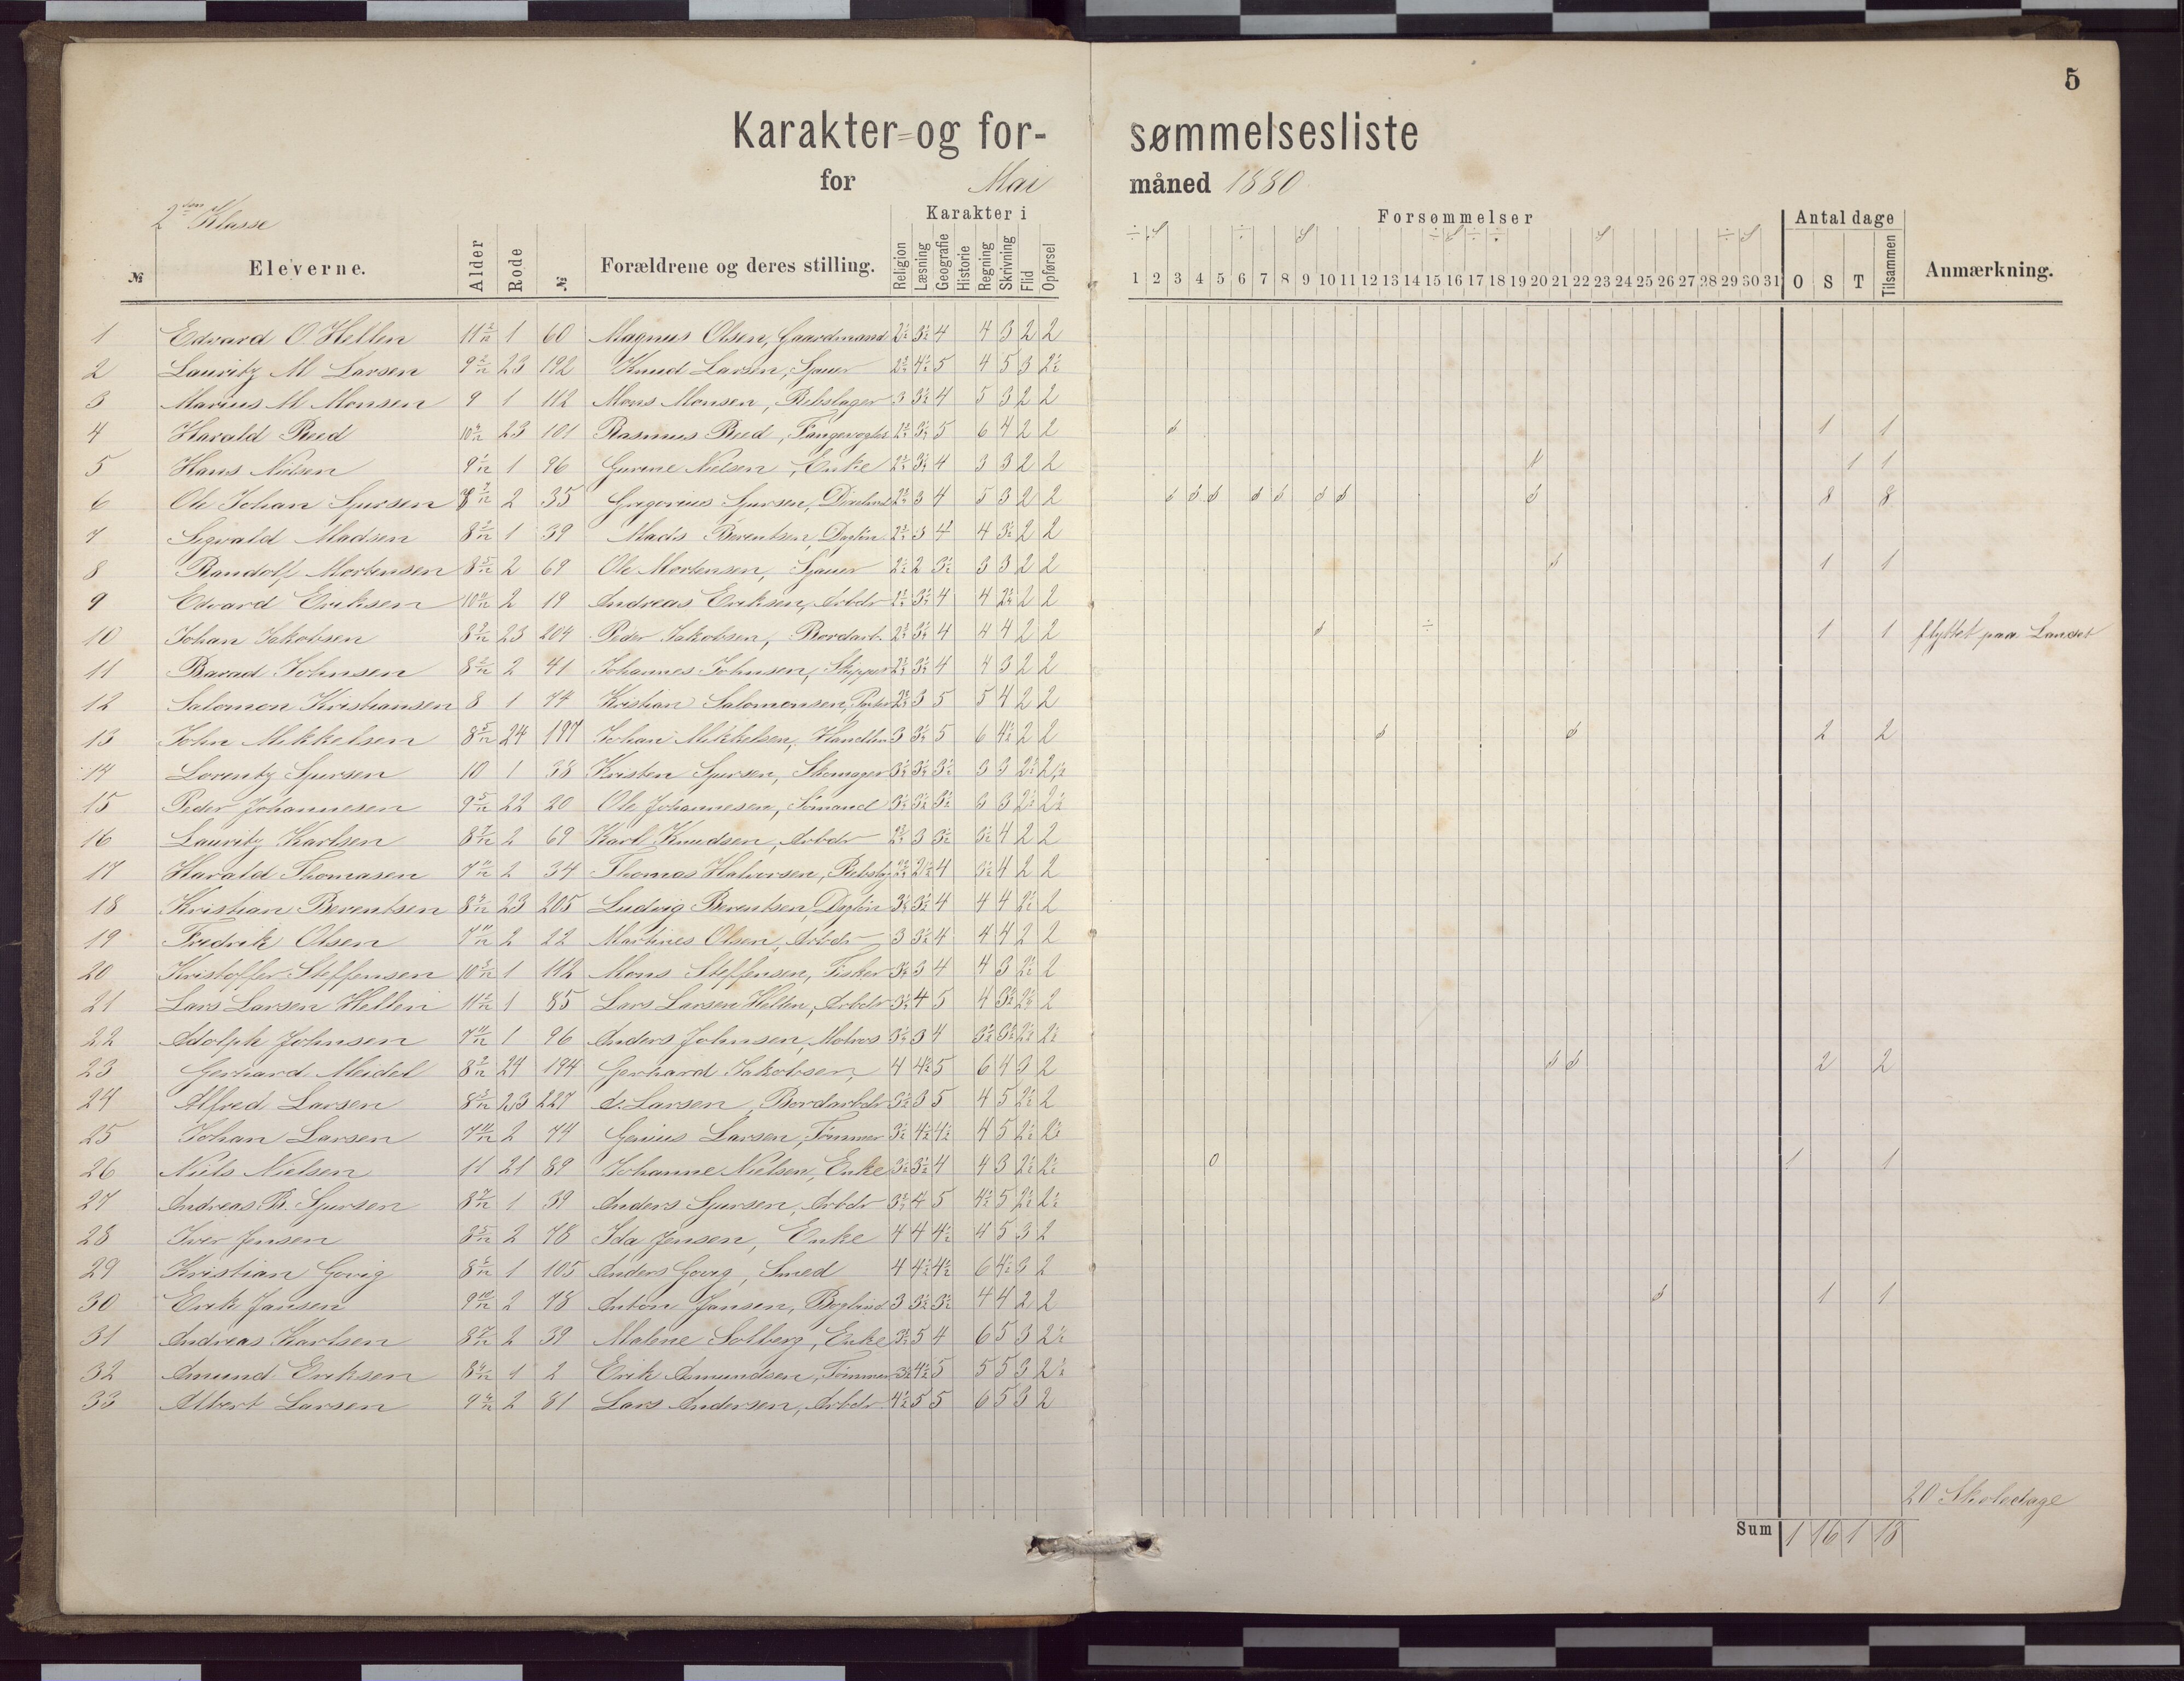 5
Karakter- og for-sømmelsesliste
for Mai måned 1880
2den Klasse
Karakter i Forsømmelser Antal dage
№ Eleverne. Alder Rode № Forældrene og deres stilling. Religion Læsning Geografie Historie Regning Skrivning Flid Opførsel 1 2 3 4 5 6 7 8 9 10 11 12 13 14 15 16 17 18 19 20 21 22 23 24 25 26 27 28 29 30 31 O S T Tilsammen Anmærkning.
1 Edvard O. Hellen 1 60 Magnus Olsen, Gaardmand 3½ 4 4 3 2 2
2 Lauritz M Larsen 9 2/12 23 192 Knud Larsen, Sjauer 4½ 5 4 5 3 2½
3 Marius M Monsen 9 1 112 Mons Monsen, Rebslager 3 3½ 4 5 3 2 2
4 Harald Reed 23 101 Rasmus Reed, Fangevogter 2½ 3½ 5 6 4 2 2 1 1
5 Hans Nielsen 9 1/12 1 96 Gurine Nielsen, Enke 2½ 3½ 4 3 3 2 2 1 1
6 Ole Johan Sjursen 2 35 Gregorius Sjursen, 2½ 3 4 5 3 2 2 8 8
7 Sigvald Madsen 1 39 Mads Berentsen, Dagløn. 2½ 3 4 4 3½ 2 2
8 Randolf Mortensen 8 5/12 2 69 Ole Mortensen, Sjauer 2½ 2 3½ 3 3 2 2 1 1
9 Edvard Eriksen 2 19 Andreas Eriksen, Arbdr 3½ 4 4 2½ 2 2
10 Johan Jakobsen 23 204 Peder Jakobsen, Bordarb. 2½ 3½ 4 4 4 2 2 ÷ 1 1 flyttet paa Landet
11 Barad Johnsen 2 41 Johannes Johnsen, Skipper 2½ 3½ 4 4 3 2 2
12 Salomon Kristiansen 8 1 74 Kristian Salomonsen, 2½ 3 5 5 4 2 2
13 John Mikkelsen 8 5/12 24 197 Johan Mikkelsen, 3 3½ 5 6 4½ 2 2 2 2
14 Lorentz Sjursen 10 1 38 Kristen Sjursen, Skomager 3½ 3½ 3½ 3 3 2½ 2½
15 Peder Johannesen 9 5/12 22 20 Ole Johannesen, Sømand 3½ 3½ 3½ 3 3 2½ 2½
16 Lauritz Karlsen 8 7/12 2 69 Karl Knudsen, Arbdr 2½ 3 3½ 3½ 4 2 2
17 Harald Thomasen 7 11/12 2 34 Thomas Halvorsen, Rebslag 2½ 2½ 4 3½ 4 2 2
18 Kristian Berentsen 23 205 Ludvig Berentsen, Dagløn 3½ 3½ 4 4 4 2½ 2
19 Fredrik Olsen 7 11/12 2 22 Martines Olsen, Arbdr 3 3½ 4 4 4 2 2
20 Kristoffer Steffensen 1 112 Mons Steffensen, Fisker 3½ 3 4 4 3 2½ 2
21 Lars Larsen Hellen 1 85 Lars Larsen Hellen, Arbdr 3½ 4 5 4 3½ 2½ 2
22 Adolph Johnsen 7 11/12 1 96 Anders Johnsen, Matros 3½ 3 4 3½ 3½ 2½ 2½
23 Gerhard Meidel 24 194 Gerhard Jakobsen, 4 4½ 5 6 4 3 2 2 2
24 Alfred Larsen 23 227 A. Larsen, Bordarbdr 3½ 3 5 4 5 2½ 2
25 Johan Larsen 7 11/12 2 74 Larsen, Tømmer 3½ 4½ 4½ 4 5 2½ 2½
26 Niels Nielsen 11 21 89 Johanne Nielsen, Enke 3½ 3½ 4 4 3 2½ 2½ 0 1 1
27 Andreas B. Sjursen 8 7/12 1 39 Anders Sjursen, Arbdr 3½ 4 5 4½ 5 2½ 2½
28 Iver Jensen 8 5/12 2 78 Ida Jensen, Enke 4 4 4½ 4 5 3 2
29 Kristian Govig 1 105 Anders Govig, Smed 4 4½ 4½ 6 4½ 3 2
30 Erik Jansen 9 10/12 2 78 Anton Jansen, 3 3½ 3½ 4 4 2 2 1 1
31 Andreas Karlsen 8 7/12 2 39 Malene Solberg, Enke 3½ 5 4 6 5 3 2½
32 Amund Eriksen 1 2 Erik Amundsen, Tømmer 3½ 4½ 5 5 5 3 2½
33 Albert Larsen 2 81 Lars Andersen, Arbdr 4½ 5 5 6 5 3 2
20 Skoledage
Sum 1 16 1 18